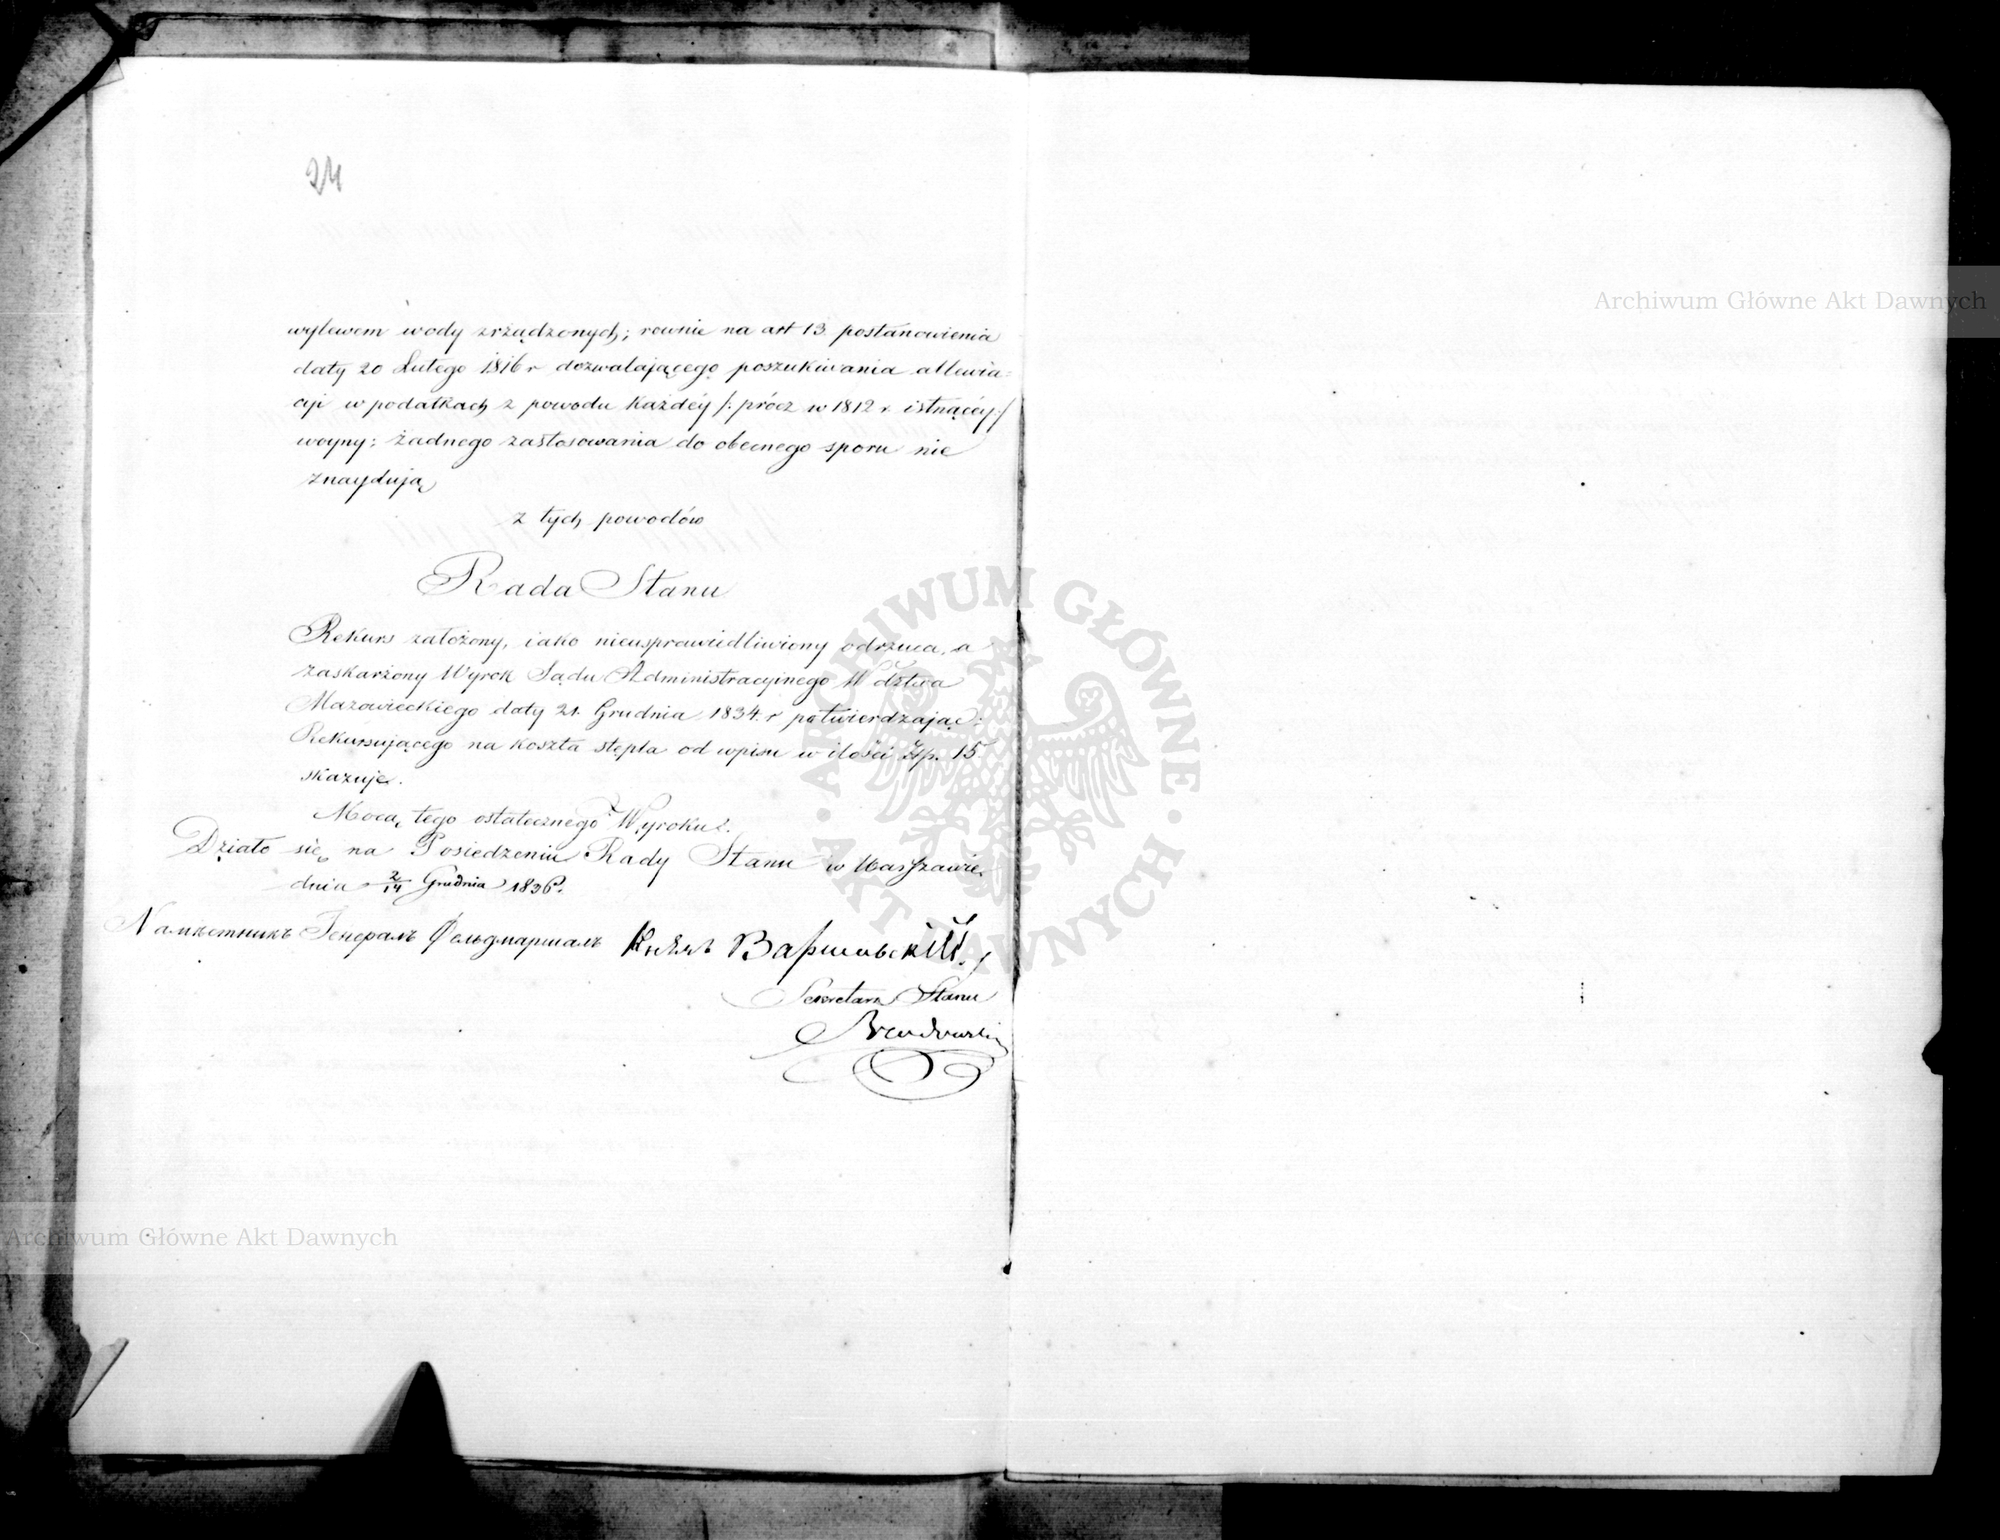 24
wylewem wody zrządzonych; rownie na art 13 postanowienia
daty 20 Lutego 1816 r dozwalającego poszukiwania allewia=
cyi w podatkach z powodu każdéy /: prócz w 1812 r. istnącéy :/
woyny; żadnego zastosowania do obecnego sporu nie
znayduią
z tych powodów
Rada Stanu
Rekurs założony, iako nieusprawiedliwiony odrzuca, a
zaskarżony Wyrok Sądu Administracyinego Wdztwa
Mazowieckiego daty 21. Grudnia 1834. r potwierdzając:
Rekursującego na koszta stępla od wpisu w ilości Złp. 15
skazuje.
Mocą tego ostatecznego Wyroku.
Działo się na Posiedzeniu Rady Stanu w Warszawie
dnia 2/14 Grudnia 1836.
Намѣстникъ Генералъ Фельдмаршалъ Князь Варшавскій
Sekretarz Stanu
Archiwum Główne Akt Dawnych
Archiwum Główne Akt Dawnych
ARCHIWUM GŁÓWNE AKT DAWNYCH